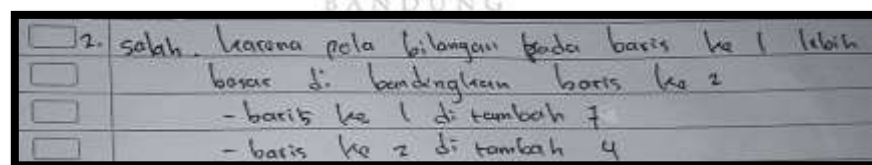 BANDUNG
2. salah. karena pola bilangan pada baris ke 1 lebih
besar di bandingkan baris ke 2
- baris ke 1 di tambah 7
- baris ke 2 di tambah 4